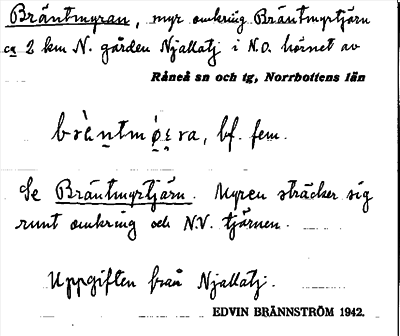 Bräntmyran, myr omkring Bräntmyrtjärn
ca 2 km N. gården Njallatj i N.O. hörnet av
Råneå sn och tg, Norrbottens län
bf. fem.
Se Bräntmyrtjärn. Myren sträcker sig
runt omkring och N.V. tjärnen.
Uppgiften från Njallatj.
EDVIN BRÄNNSTRÖM 1942.